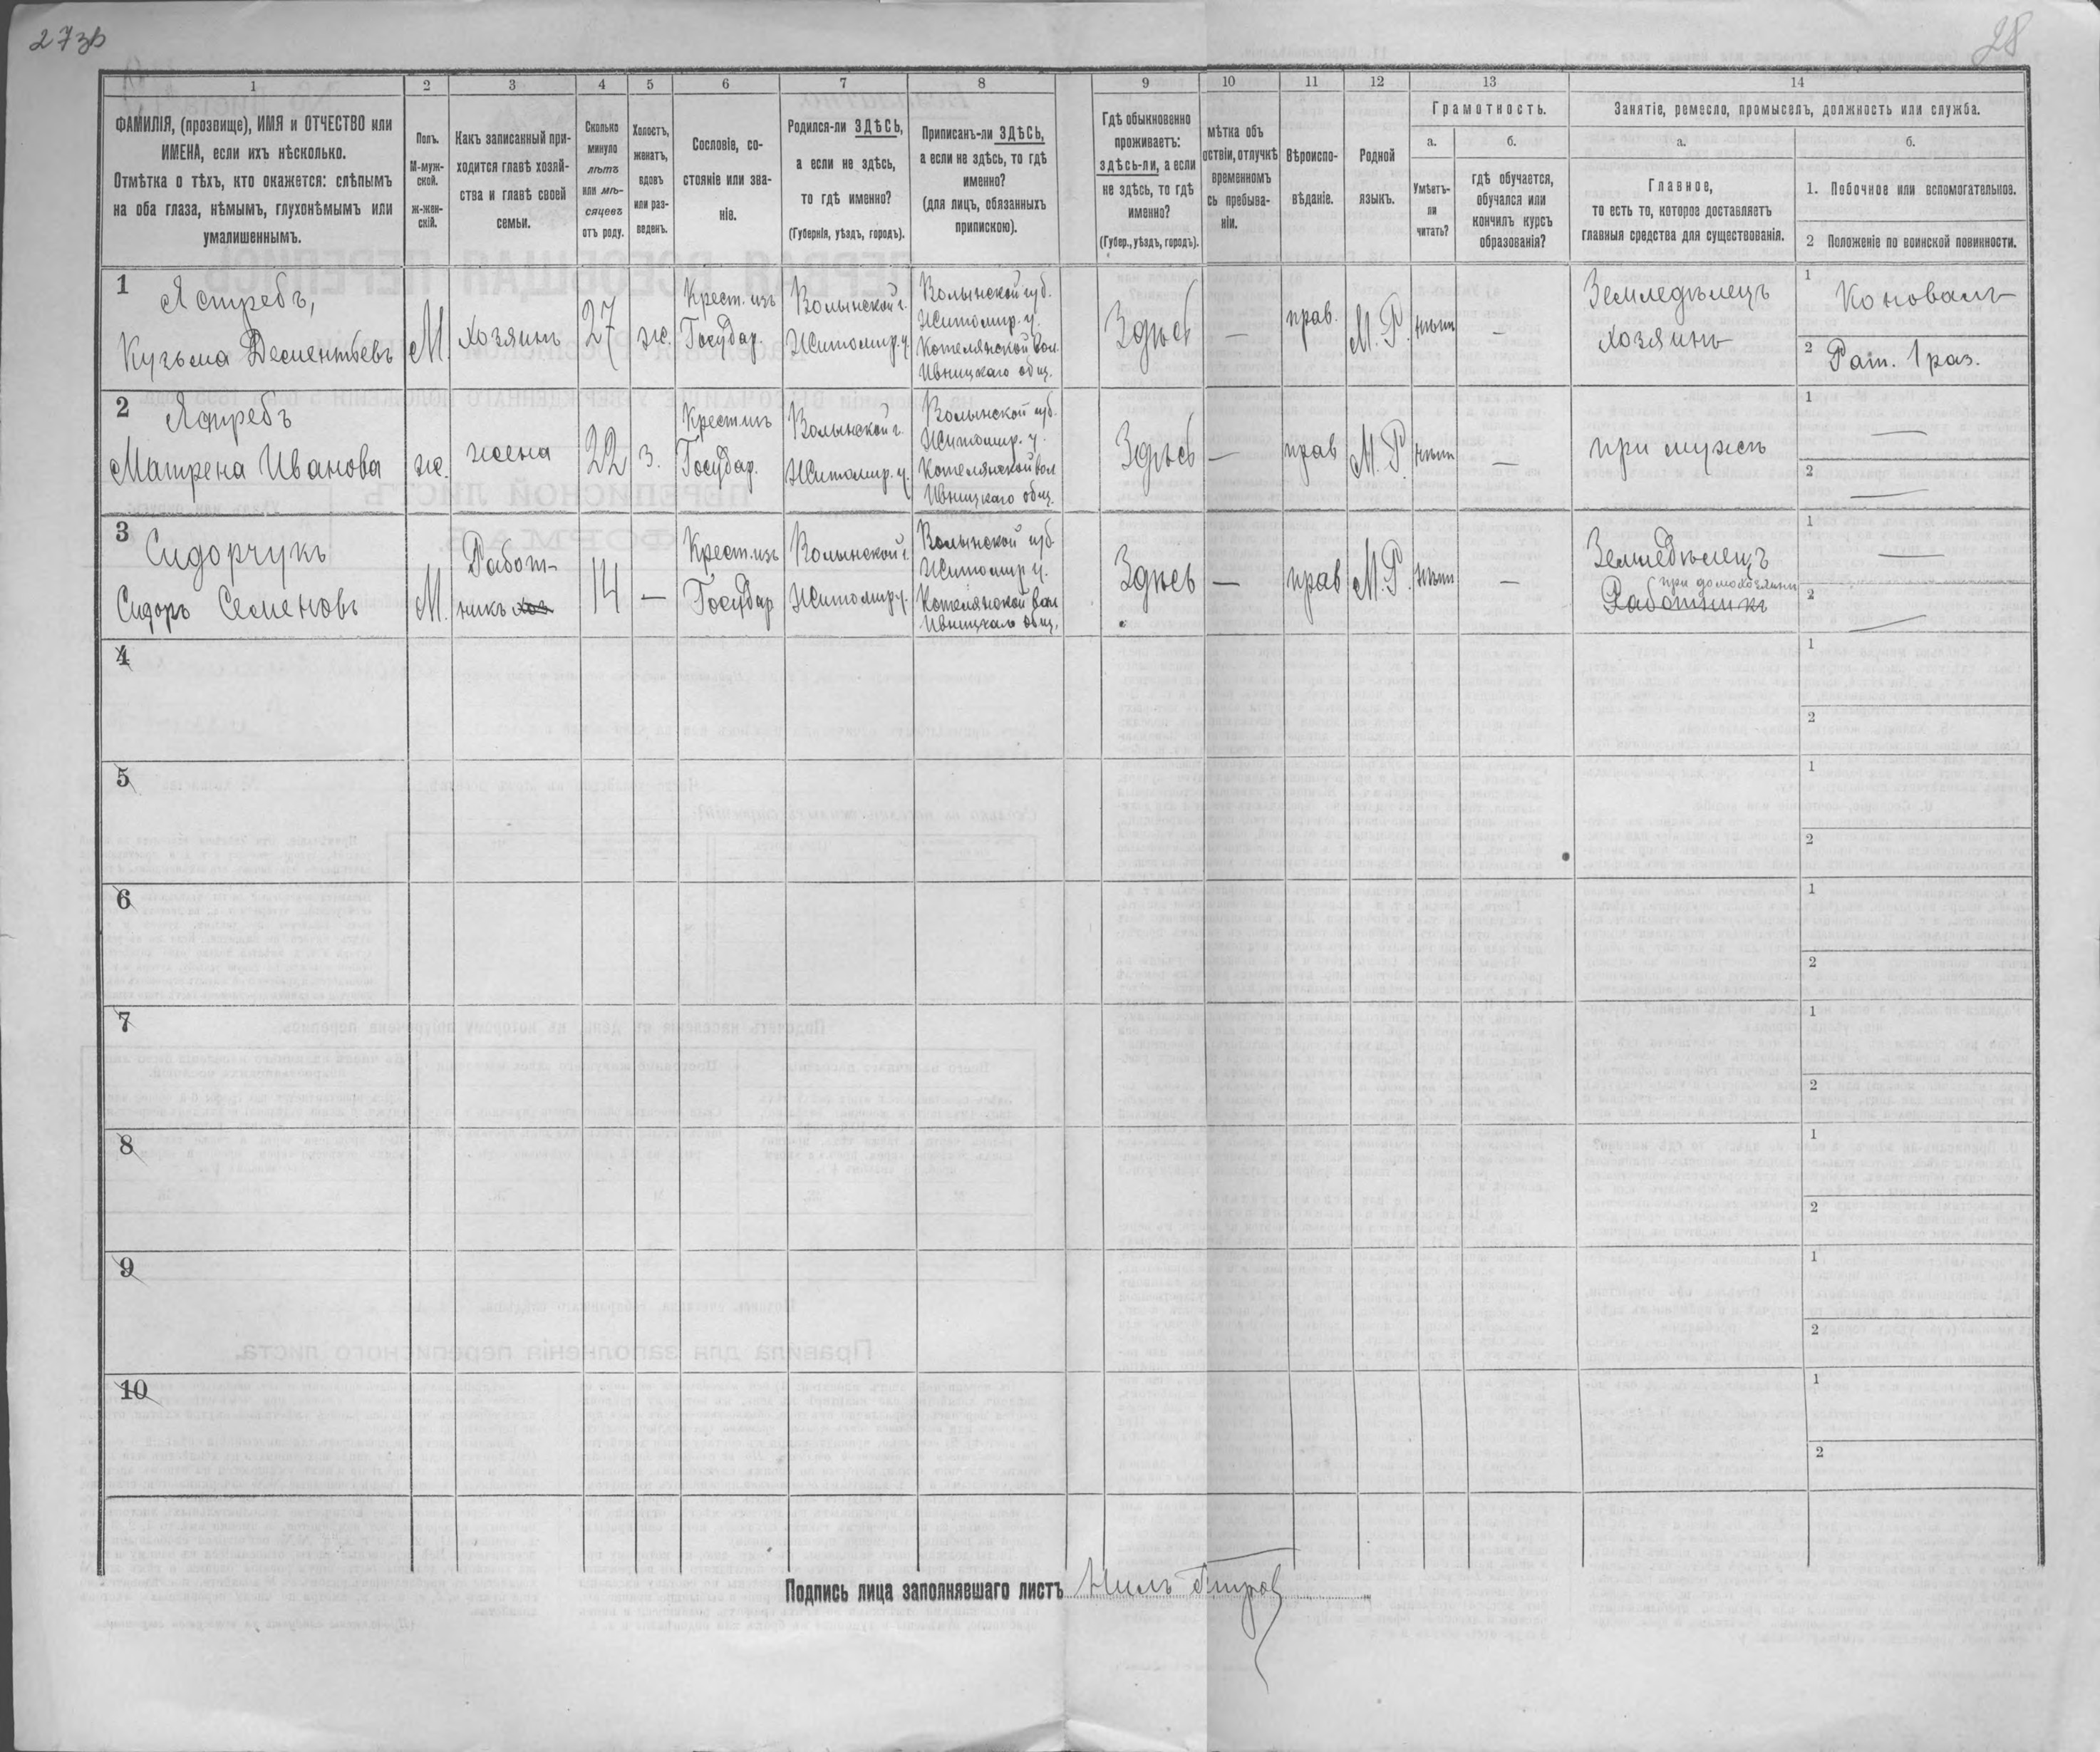 27зв
28
1
2
3
4
5
6
7
8
9
10
11
12
13
14
ФАМИЛІЯ, (прозвище), ИМЯ и ОТЧЕСТВО или
ИМЕНА, если ихъ нѣсколько.
Отмѣтка о тѣхъ, кто окажется: слѣпымъ
на оба глаза, нѣмымъ, глухонѣмымъ или
умалишеннымъ.
Полъ.
М-муж-
ской.
Ж-жен-
скій.
Какъ записанный при-
ходится главѣ хозяй-
ства и главѣ своей
семьи.
Сколько
минуло
лѣтъ
или мѣ-
сяцевъ
отъ роду.
Холостъ,
женатъ,
вдовъ
или раз-
веденъ.
Сословіе, со-
стояніе или зва-
ніе.
Родился-ли ЗДѢСЬ,
а если не здѣсь,
то гдѣ именно?
(Губернія, уѣздъ, городъ).
Приписанъ-ли ЗДѢСЬ,
а если не здѣсь, то гдѣ
именно?
(для лицъ, обязанныхъ
припискою).
Гдѣ обыкновенно
проживаетъ:
здѣсь-ли, а если
не здѣсь, то гдѣ
именно?
(Губер., уѣздъ, городъ).
мѣтка объ
ствіи, отлучкѣ
временномъ
сь пребыва-
ніи.
Вѣроиспо-
вѣданіе.
Родной
языкъ.
Грамотность.
а.
Умѣетъ-
ли
читать?
б.
гдѣ обучается,
обучался или
кончилъ курсъ
образованія?
Занятіе, ремесло, промыселъ, должность или служба.
а.
Главное,
то есть то, которое доставляетъ
главныя средства для существованія.
б.
1. Побочное или вспомогательное.
2 Положеніе по воинской повинности.
1
Ястребъ,
Кузьма Дементьевъ
М.
хозяинъ
27
ж.
Крест. изъ
Государ.
Волынской г.
Житомир. у.
Волынской губ.
Житомир. у.
Котелянской вол.
Ивницкаго общ.
Здѣсь
—
прав.
М. Р.
нѣтъ
—
Земледѣлецъ
хозяинъ
1
Коновалъ
2
Рат. 1 раз.
2
Ястребъ
Матрена Иванова
ж.
жена
22
з.
Крест. изъ
Государ.
Волынской г.
Житомир. у.
Волынской губ.
Житомир. у.
Котелянской вол
Ивницкаго общ.
Здѣсь
—
прав
М. Р.
нѣтъ
—
при мужѣ
1
—
2
—
3
Сидорчукъ
Сидоръ Семеновъ
М.
Работ-
никъ хоз
14
—
Крест. изъ
Государ
Волынской г.
Житомир у.
Волынской губ.
Житомир у.
Котелянской вол
Ивницкаго общ.
Здѣсь
—
прав
М. Р.
нѣтъ
—
Земледѣлецъ
при домохозяинѣ
Работникъ
1
—
2
—
4
1
2
5
1
2
6
1
2
7
1
2
8
1
2
9
1
2
10
1
2
Подпись лица заполнявшаго листъ